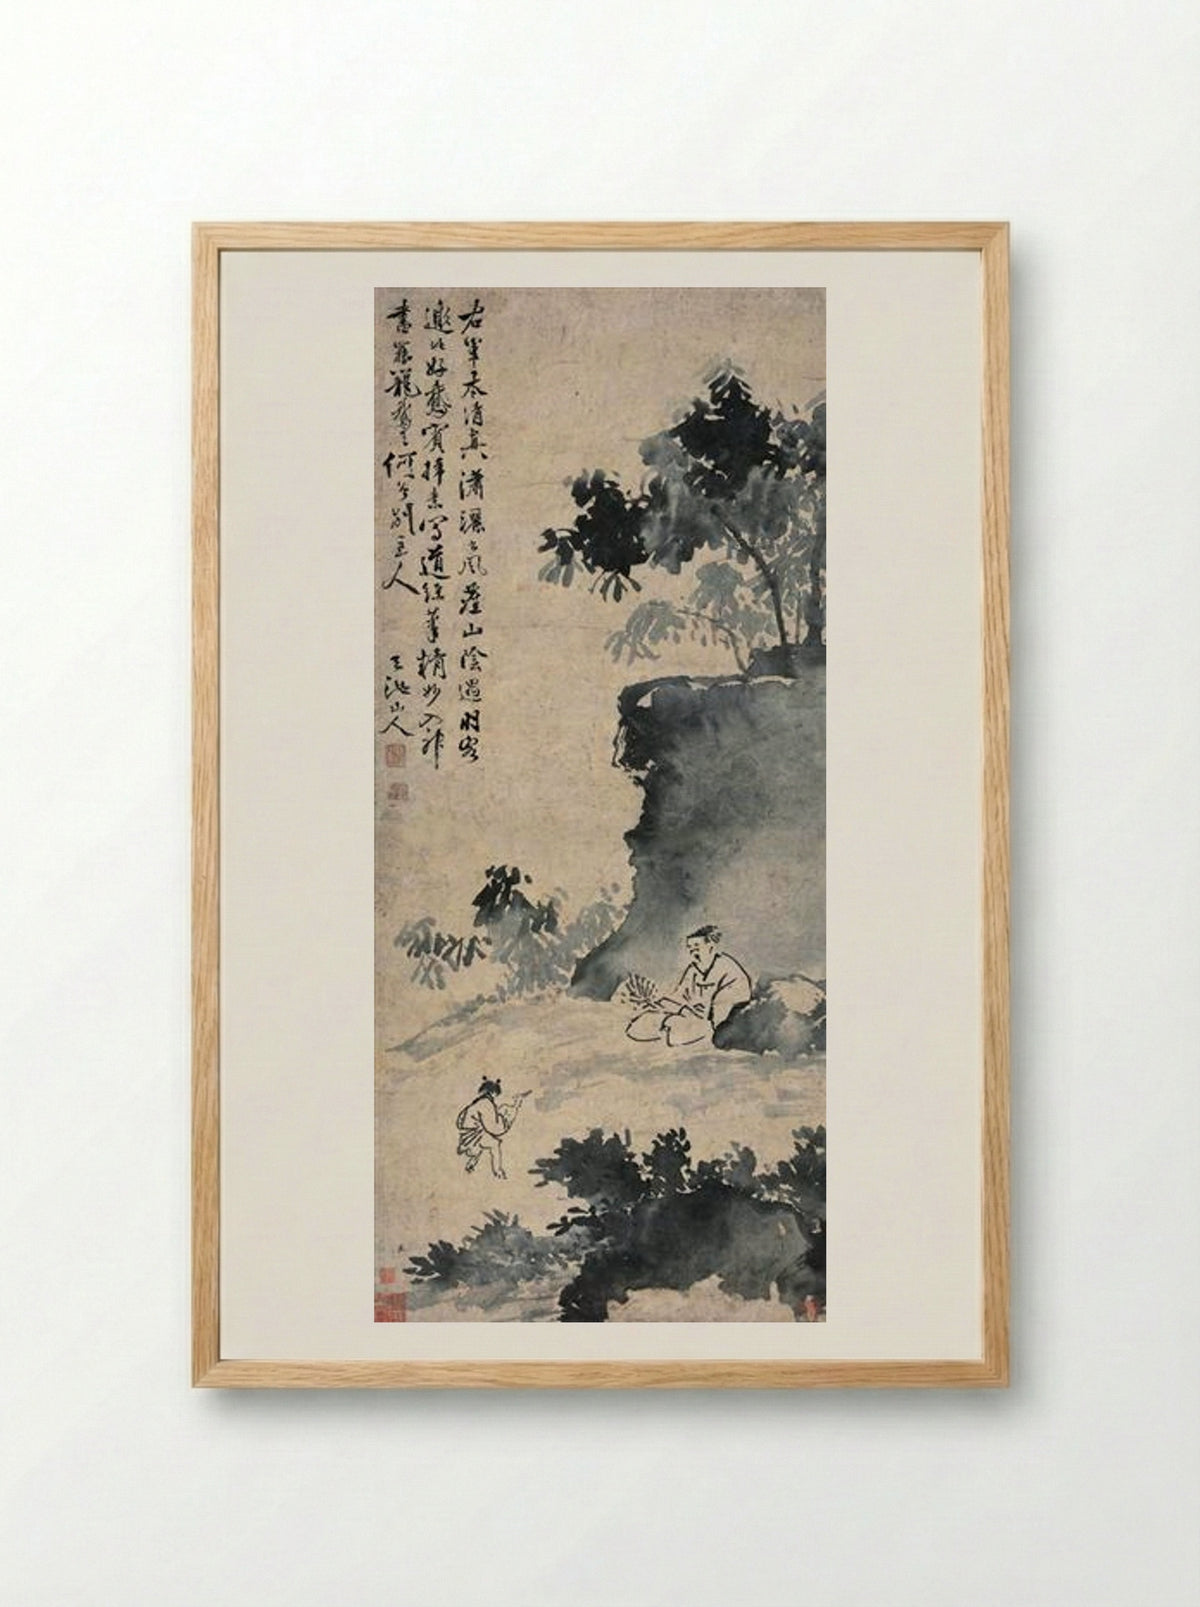 右軍本清真瀟灑出風塵山陰遇羽客
邀此好鵝賓掃素寫道經筆精妙入神
書罷籠鵝去何曾別主人 天池山人